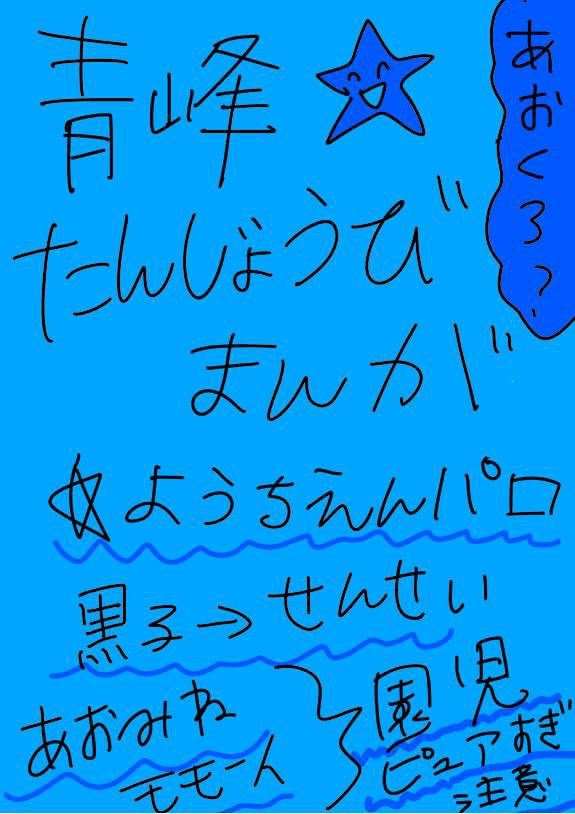 あおくろ?
青峰
たんじょうび
まんが
☆ようちえんパロ
黒子→せんせい
あおみね
モモーん
園児
ピュアすぎ
注意